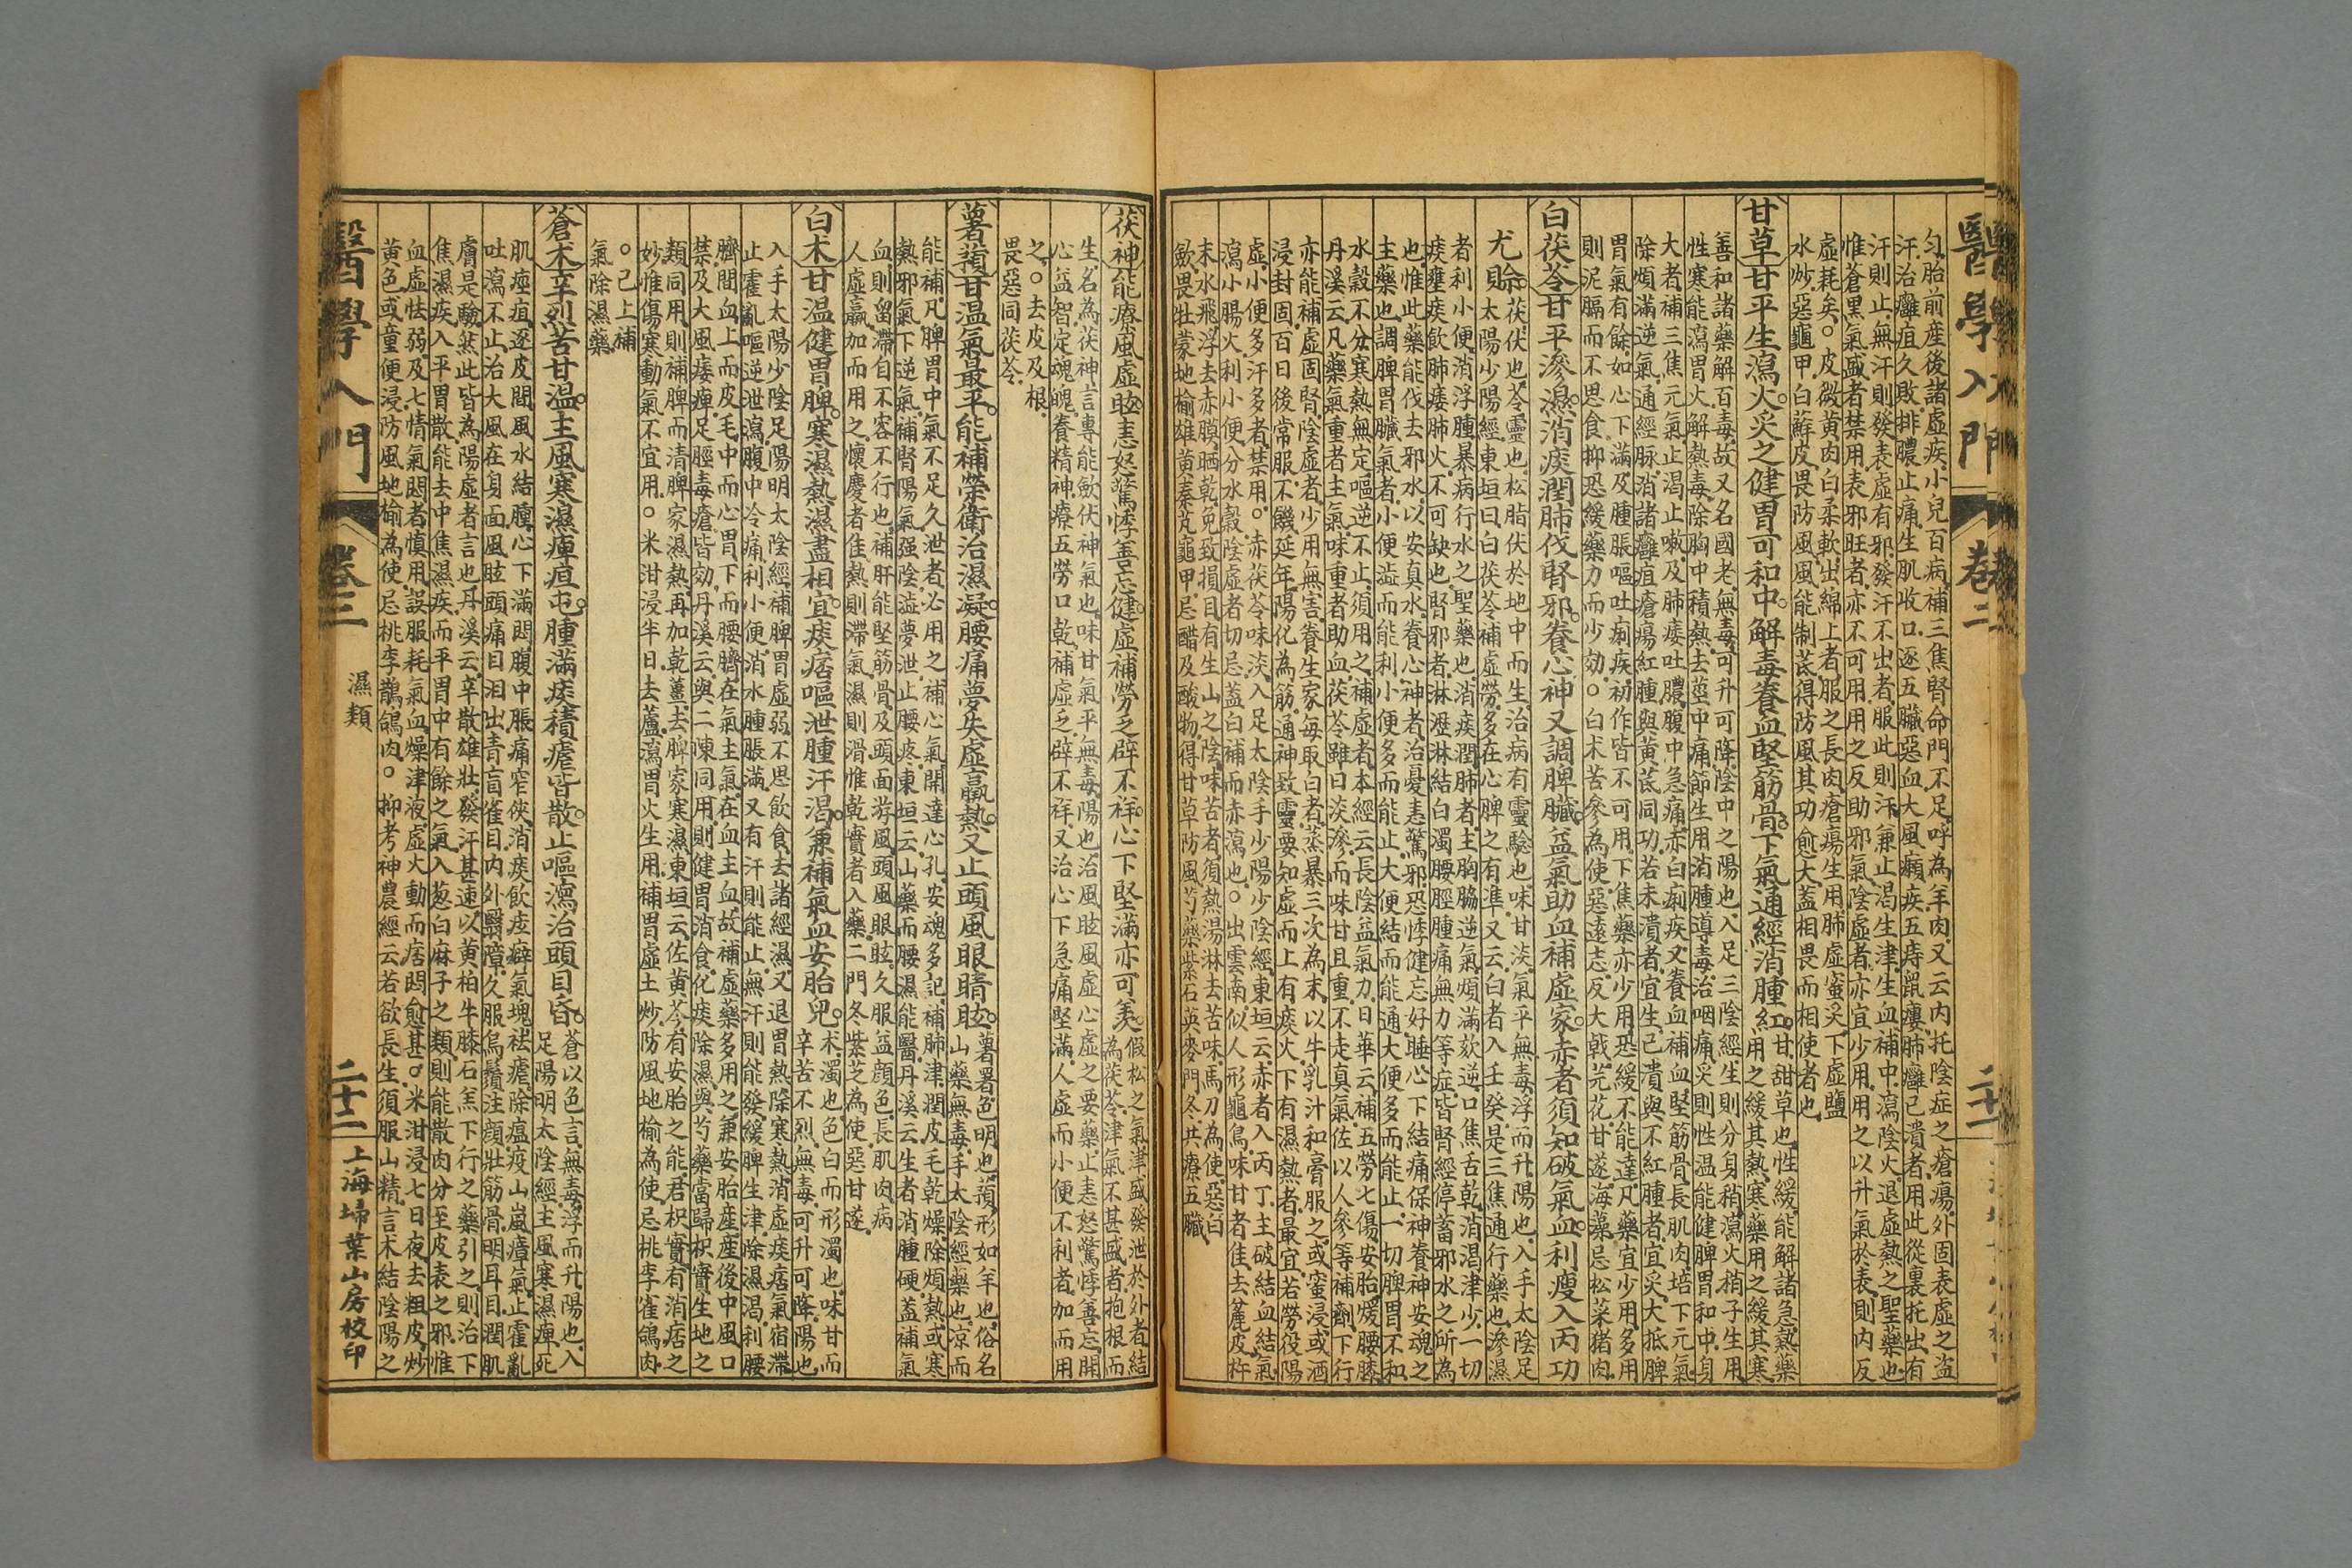 醫學入門
卷二
二十一
匀胎前産後諸虛疾小兒百病補三焦腎命門不足呼為羊肉又云内托陰症之瘡瘍外固表虛之盜
汗治癰疽久敗排膿止痛生肌收口逐五臟惡血大風癩疾五痔鼠瘻肺癰已潰者用此從裏托出有
汗則止無汗則發表虛有邪發汗不出者服此則汗兼止渴生津生血補中瀉陰火退虛熱之聖藥也
惟蒼黑氣盛者禁用表邪旺者亦不可用用之反助邪氣陰虛者亦宜少用用之以升氣於表則内反
虛耗矣○皮微黃肉白柔軟出綿上者服之長肉瘡瘍生用肺虛蜜炙下虛鹽
水炒惡龜甲白蘚皮畏防風風能制芪得防風其功愈大蓋相畏而相使者也
甘草甘平生瀉火炙之健胃可和中解毒養血堅筋骨下氣通經消腫紅甘甜草也性緩能解諸急熱藥
用之緩其熱寒藥用之緩其寒
善和諸藥解百毒故又名國老無毒可升可降陰中之陽也入足三陰經生則分身稍瀉火稍子生用
性寒能瀉胃火解熱毒除胸中積熱去莖中痛節生用消腫導毒治咽痛炙則性温能健脾胃和中身
大者補三焦元氣止渴止嗽及肺痿吐膿腹中急痛赤白痢疾又養血補血堅筋骨長肌肉培下元氣
除煩滿逆氣通經脉消諸癰疽瘡瘍紅腫與黃芪同功若未潰者宜生已潰與不紅腫者宜炙大抵脾
胃氣有餘如心下滿及腫脹嘔吐痢疾初作皆不可用下焦藥亦少用恐緩不能達凡藥宜少用多用
則泥膈而不思食抑恐緩藥力而少効○白术苦參為使惡遠志反大戟芫花甘遂海藻忌松菜猪肉
白茯苓甘平滲濕消痰潤肺伐腎邪養心神又調脾臟益氣助血補虛家赤者須知破氣血利瘦入丙功
尤賒茯伏也苓靈也松脂伏於地中而生治病有靈驗也味甘淡氣平無毒浮而升陽也入手太陰足
太陽少陽經東垣曰白茯苓補虛勞多在心脾之有準又云白者入壬癸是三焦通行藥也滲濕
者利小便消浮腫暴病行水之聖藥也消痰潤肺者主胸脇逆氣煩滿欬逆口焦舌乾消渴津少一切
痰壅痰飲肺痿肺火不可缺也腎邪者淋瀝淋結白濁腰脛腫痛無力等症皆腎經停蓄邪水之所為
也惟此藥能伐去邪水以安真水養心神者治憂恚驚邪恐悸健忘好睡心下結痛保神養神安魂之
主藥也調脾胃臟氣者小便澁而能利小便多而能止大便結而能通大便多而能止一切脾胃不和
水穀不分寒熱無定嘔逆不止須用之補虛者本經云長陰益氣力日華云補五勞七傷安胎煖腰膝
丹溪云凡藥氣重者主氣味重者助血茯苓雖曰淡滲而味甘且重不走真氣佐以人參等補劑下行
亦能補虛固腎陰虛者少用無害養生家每取白者蒸暴三次為末以牛乳汁和膏服之或蜜浸或酒
浸封固百日後常服不饑延年陽化為筋通神致靈要知虛而上有痰火下有濕熱者最宜若勞役陽
虛小便多汗多者禁用○赤茯苓味淡入足太陰手少陽少陰經東垣云赤者入丙丁主破結血結氣
瀉小腸火利小便分水穀陰虛者切忌蓋白補而赤瀉也○出雲南似人形龜鳥味甘者佳去麄皮杵
末水飛浮去赤膜晒乾免致損目有生山之陰味苦者須熱湯淋去苦味馬刀為使惡白
斂畏牡蒙地榆雄黃秦艽龜甲忌醋及酸物得甘草防風芍藥紫石英麥門冬共療五臟
茯神能療風虛眩恚怒驚悸善忘健虛補勞乏辟不祥心下堅滿亦可羙假松之氣津盛發泄於外者結
為茯苓津氣不甚盛者抱根而
生名為茯神言專能斂伏神氣也味甘氣平無毒陽也治風眩風虛心虛之要藥止恚怒驚悸善忘開
心益智定魂魄養精神療五勞口乾補虛乏辟不祥又治心下急痛堅滿人虛而小便不利者加而用
之○去皮及根
畏惡同茯苓
薯蕷甘温氣最平能補榮衛治濕凝腰痛夢失虛羸熱又止頭風眼睛眩薯署色明也蕷形如羊也俗名
山藥無毒手太陰經藥也涼而
能補凡脾胃中氣不足久泄者必用之補心氣開達心孔安魂多記補肺津潤皮毛乾燥除煩熱或寒
熱邪氣下逆氣補腎陽氣强陰澁夢泄止腰疼東垣云山藥而腰濕能醫丹溪云生者消腫硬蓋補氣
血則留滯自不容不行也補肝能堅筋骨及頭面游風頭風眼眩久服益顔色長肌肉病
人虛羸加而用之懷慶者佳熱則滯氣濕則滑惟乾實者入藥二門冬紫芝為使惡甘遂
白术甘温健胃脾寒濕熱濕盡相宜痰痞嘔泄腫汗渴兼補氣血安胎兒术濁也色白而形濁也味甘而
辛苦不烈無毒可升可降陽也
入手太陽少陰足陽明太陰經補脾胃虛弱不思飲食去諸經濕又退胃熱除寒熱消虛痰痞氣宿滯
止霍亂嘔逆泄瀉腹中冷痛利小便消水腫脹滿又有汗則能止無汗則能發緩脾生津除濕渴利腰
臍間血上而皮毛中而心胃下而腰臍在氣主氣在血主血故補虛藥多用之兼安胎産産後中風口
禁及大風痿痺足脛毒瘡皆効丹溪云與二陳同用則健胃消食化痰除濕與芍藥當歸枳實生地之
類同用則補脾而清脾家濕熱再加乾薑去脾家寒濕東垣云佐黃芩有安胎之能君枳實有消痞之
妙惟傷寒動氣不宜用○米泔浸半日去蘆瀉胃火生用補胃虛土炒防風地榆為使忌桃李雀鴿肉
○已上補
氣除濕藥
蒼术辛烈苦甘温主風寒濕痺疽屯腫滿痰積瘧皆散止嘔瀉治頭目昏蒼以色言無毒浮而升陽也入
足陽明太陰經主風寒濕痺死
肌痙疽逐皮間風水結腫心下滿悶腹中脹痛窄俠消痰飲痃癖氣塊祛瘧除瘟疫山嵐瘴氣止霍亂
吐瀉不止治大風在身面風眩頭痛目泪出青盲雀目内外翳障久服烏鬚注顔壯筋骨明耳目潤肌
膚是驗然此皆為陽虛者言也丹溪云辛散雄壯發汗甚速以黃柏牛膝石羔下行之藥引之則治下
焦濕疾入平胃散能去中焦濕疾而平胃中有餘之氣入葱白麻子之類則能散肉分至皮表之邪惟
血虛怯弱及七情氣悶者慎用誤服耗氣血燥津液虛火動而痞悶愈甚○米泔浸七日夜去粗皮炒
黃色或童便浸防風地榆為使忌桃李鵲鴿肉○抑考神農經云若欲長生須服山精言术結陰陽之
醫學入門
卷三
濕類
二十二
上海埽葉山房校印